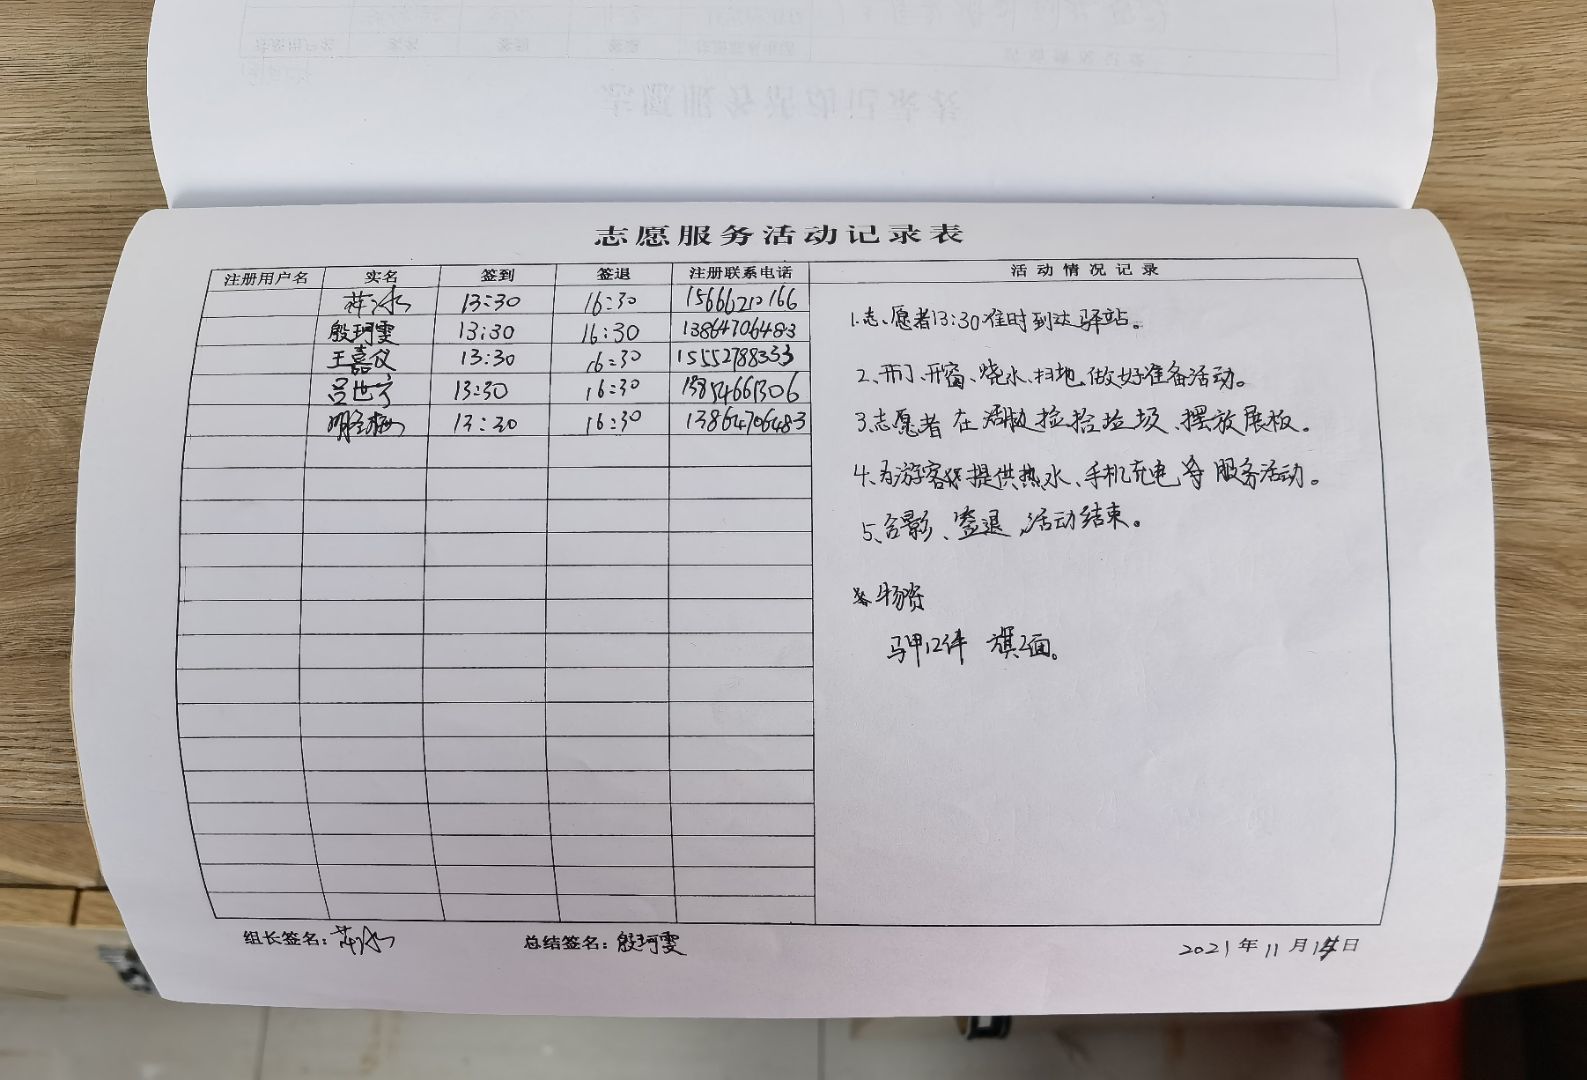 志愿服务活动记录表
注册用户名 实名 签到 签退 注册联系电话 活动情况记录
13:30 16:30 15666210166
殷珂雯 13:30 16:30 13864706483
王嘉仪 13:30 16:30 15552788333
吕世宁 13:30 16:30 13854661306
13:30 16:30 13864706483
1.志愿者13:30准时到达驿站。
2、开门、开窗、烧水、扫地,做好准备活动。
3、志愿者在 捡拾垃圾、摆放展板。
4、为游客 提供热水、手机充电等服务活动。
5、合影、签退,活动结束。
物资
马甲12件 旗2面。
组长签名: 总结签名:殷珂雯 2021年11月 日